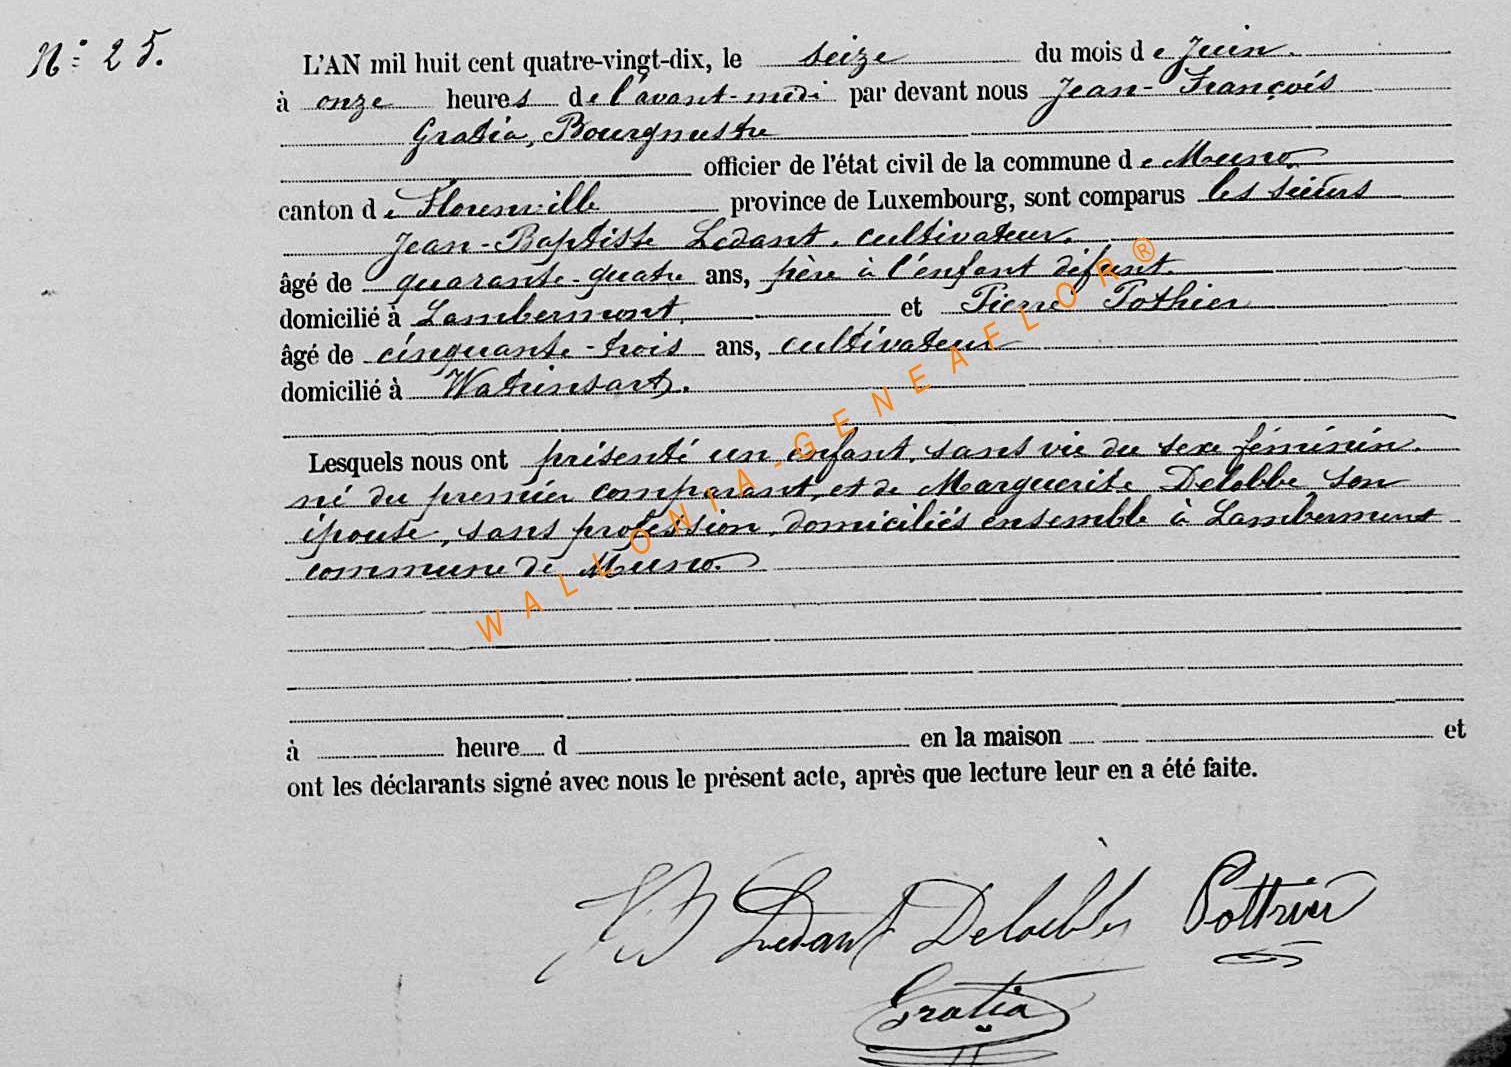 N° 25.
L'AN mil huit cent quatre-vingt-dix, le seize du mois de Juin.
à onze heures de l'avant-midi par devant nous Jean-François
Gratia, Bourgmestre
officier de l'état civil de la commune de Muno
canton de Florenville province de Luxembourg, sont comparus les sieurs
Jean-Baptiste Ledant, cultivateur,
âgé de quarante-quatre ans, père à l'enfant défunt.
domicilié à Lambermont, et Pierre Pothier
âgé de cinquante-trois ans, cultivateur
domicilié à Watrinsart.
Lesquels nous ont présenté un enfant, sans vie du sexe féminin.
né du premier comparant, et de Marguerite Delobbe, son
épouse, sans profession, domiciliés ensemble à Lambermont
commune de Muno.
à heure d en la maison et
ont les déclarants signé avec nous le présent acte, après que lecture leur en a été faite.
Ledant Delobbe Pottier
Gratia
WALLONIA-GENEAFLOR®